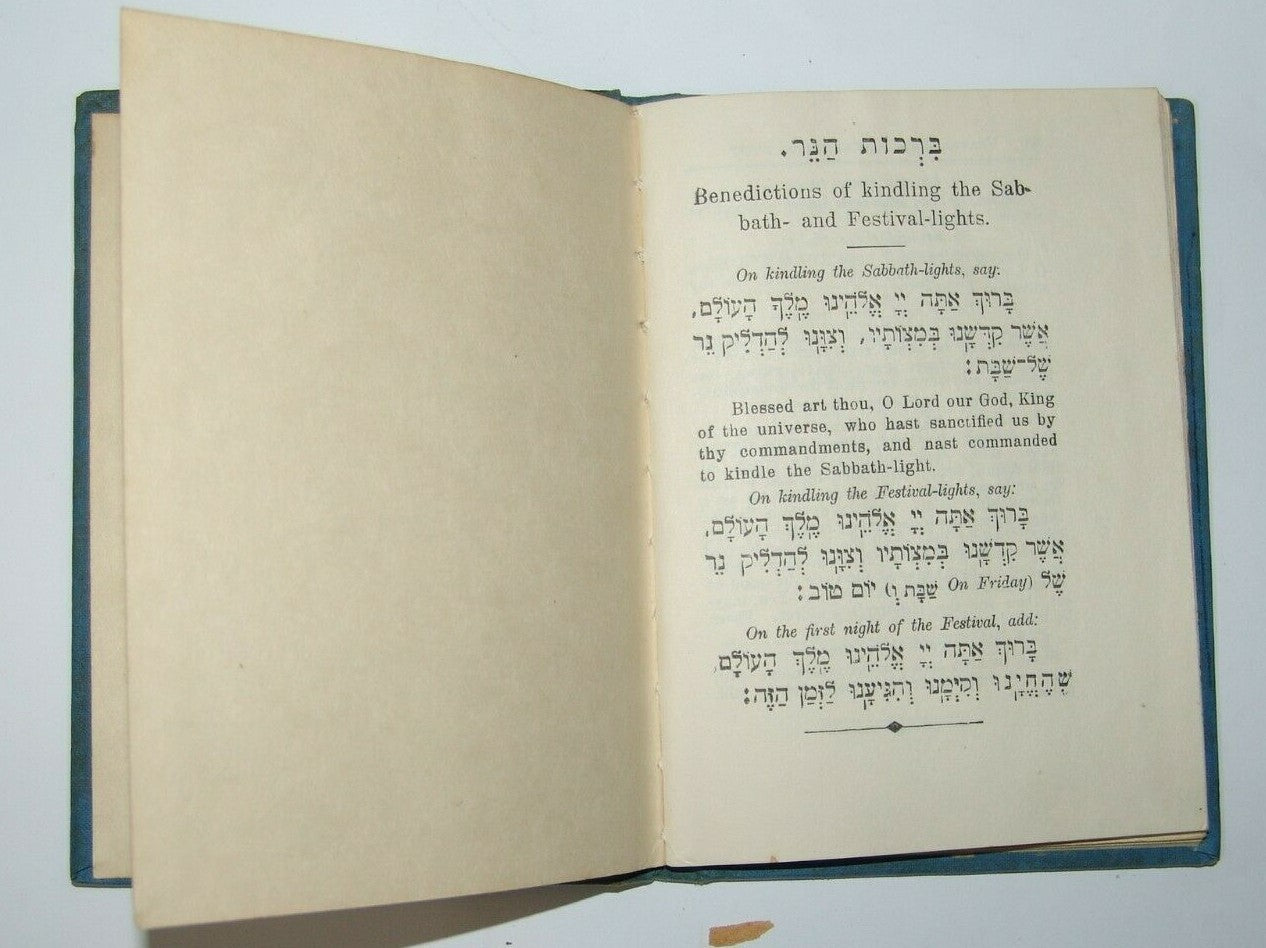 בִּרְכוֹת הַנֵּר.
Benedictions of kindling the Sab-
bath- and Festival-lights.
On kindling the Sabbath-lights, say:
בָּרוּךְ אַתָּה יְיָ אֱלֹהֵינוּ מֶלֶךְ הָעוֹלָם,
אֲשֶׁר קִדְּשָׁנוּ בְּמִצְוֹתָיו, וְצִוָּנוּ לְהַדְלִיק נֵר
שֶׁל־שַׁבָּת:
Blessed art thou, O Lord our God, King
of the universe, who hast sanctified us by
thy commandments, and nast commanded
to kindle the Sabbath-light.
On kindling the Festival-lights, say:
בָּרוּךְ אַתָּה יְיָ אֱלֹהֵינוּ מֶלֶךְ הָעוֹלָם,
אֲשֶׁר קִדְּשָׁנוּ בְּמִצְוֹתָיו וְצִוָּנוּ לְהַדְלִיק נֵר
שֶׁל (On Friday שַׁבָּת וְ) יוֹם טוֹב:
On the first night of the Festival, add:
בָּרוּךְ אַתָּה יְיָ אֱלֹהֵינוּ מֶלֶךְ הָעוֹלָם,
שֶׁהֶחֱיָנוּ וְקִיְּמָנוּ וְהִגִּיעָנוּ לַזְּמַן הַזֶּה: